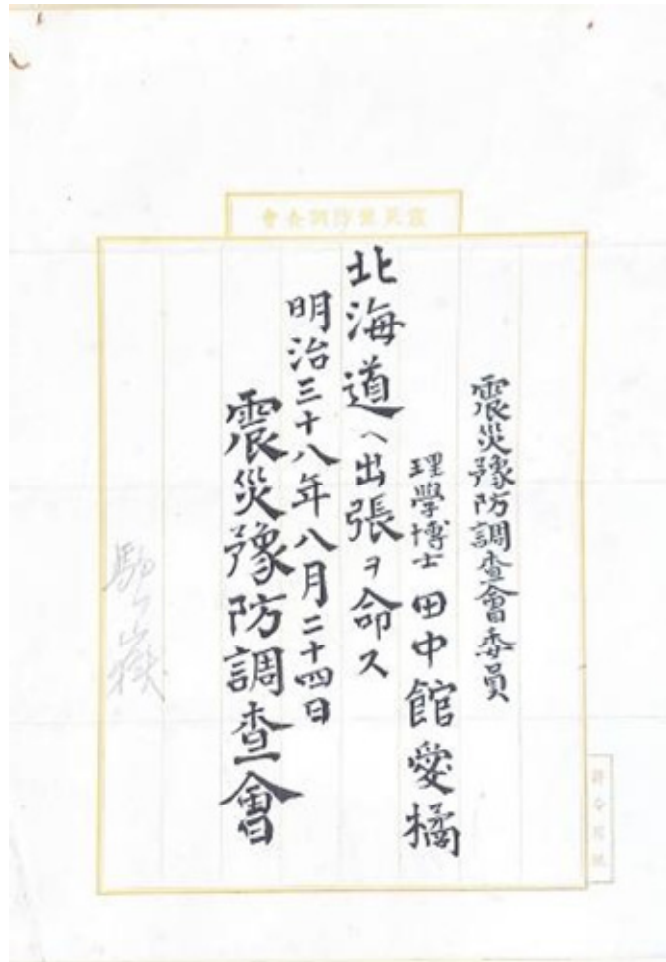 震災豫防調査會
震災豫防調査會委員
理學博士田中館愛橘
北海道へ出張ヲ命ス
明治三十八年八月二十四日
震災豫防調査會
駒ヶ嶽
辭令用紙